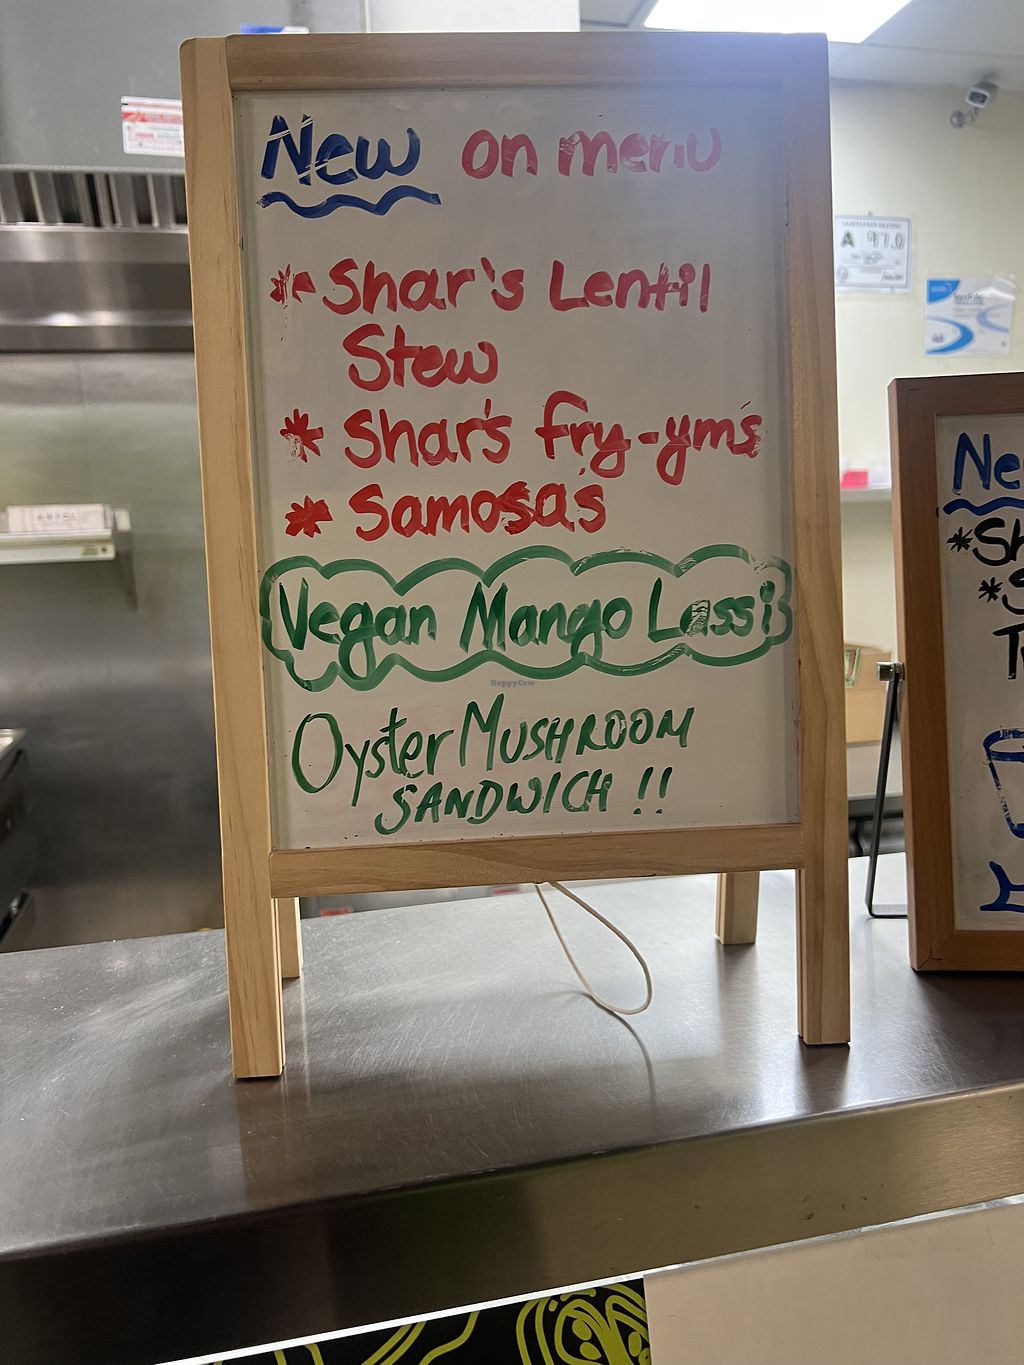 New on menu
* Shar's Lentil
Stew
* Shar's fry-yms
* Samosas
Vegan Mango Lassi
Oyster MUSHROOM
SANDWICH !!
HappyCow
A 97.0
Ne
*Sh
*S
T